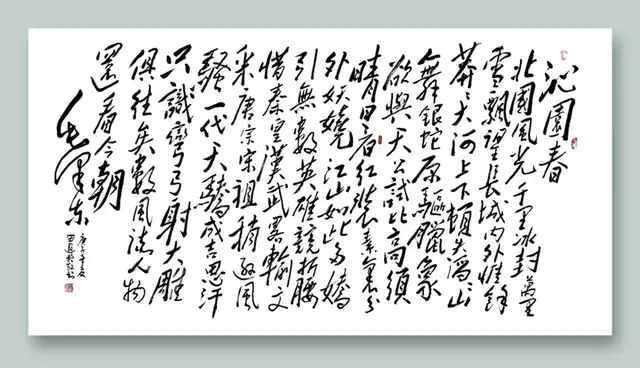 沁園春
北國風光千里冰封萬里
雪飄望長城内外惟餘
莽々大河上下頓失滔々山
舞銀蛇原驅臘象
欲與天公試比高須
晴日看紅裝素裹分
外妖嬈江山如此多嬌
引無數英雄競折腰
惜秦皇漢武畧輸文
采唐宗宋祖稍遜風
騷一代天驕成吉思汗
只識彎弓射大雕
俱往矣數風流人物
還看今朝
毛澤東